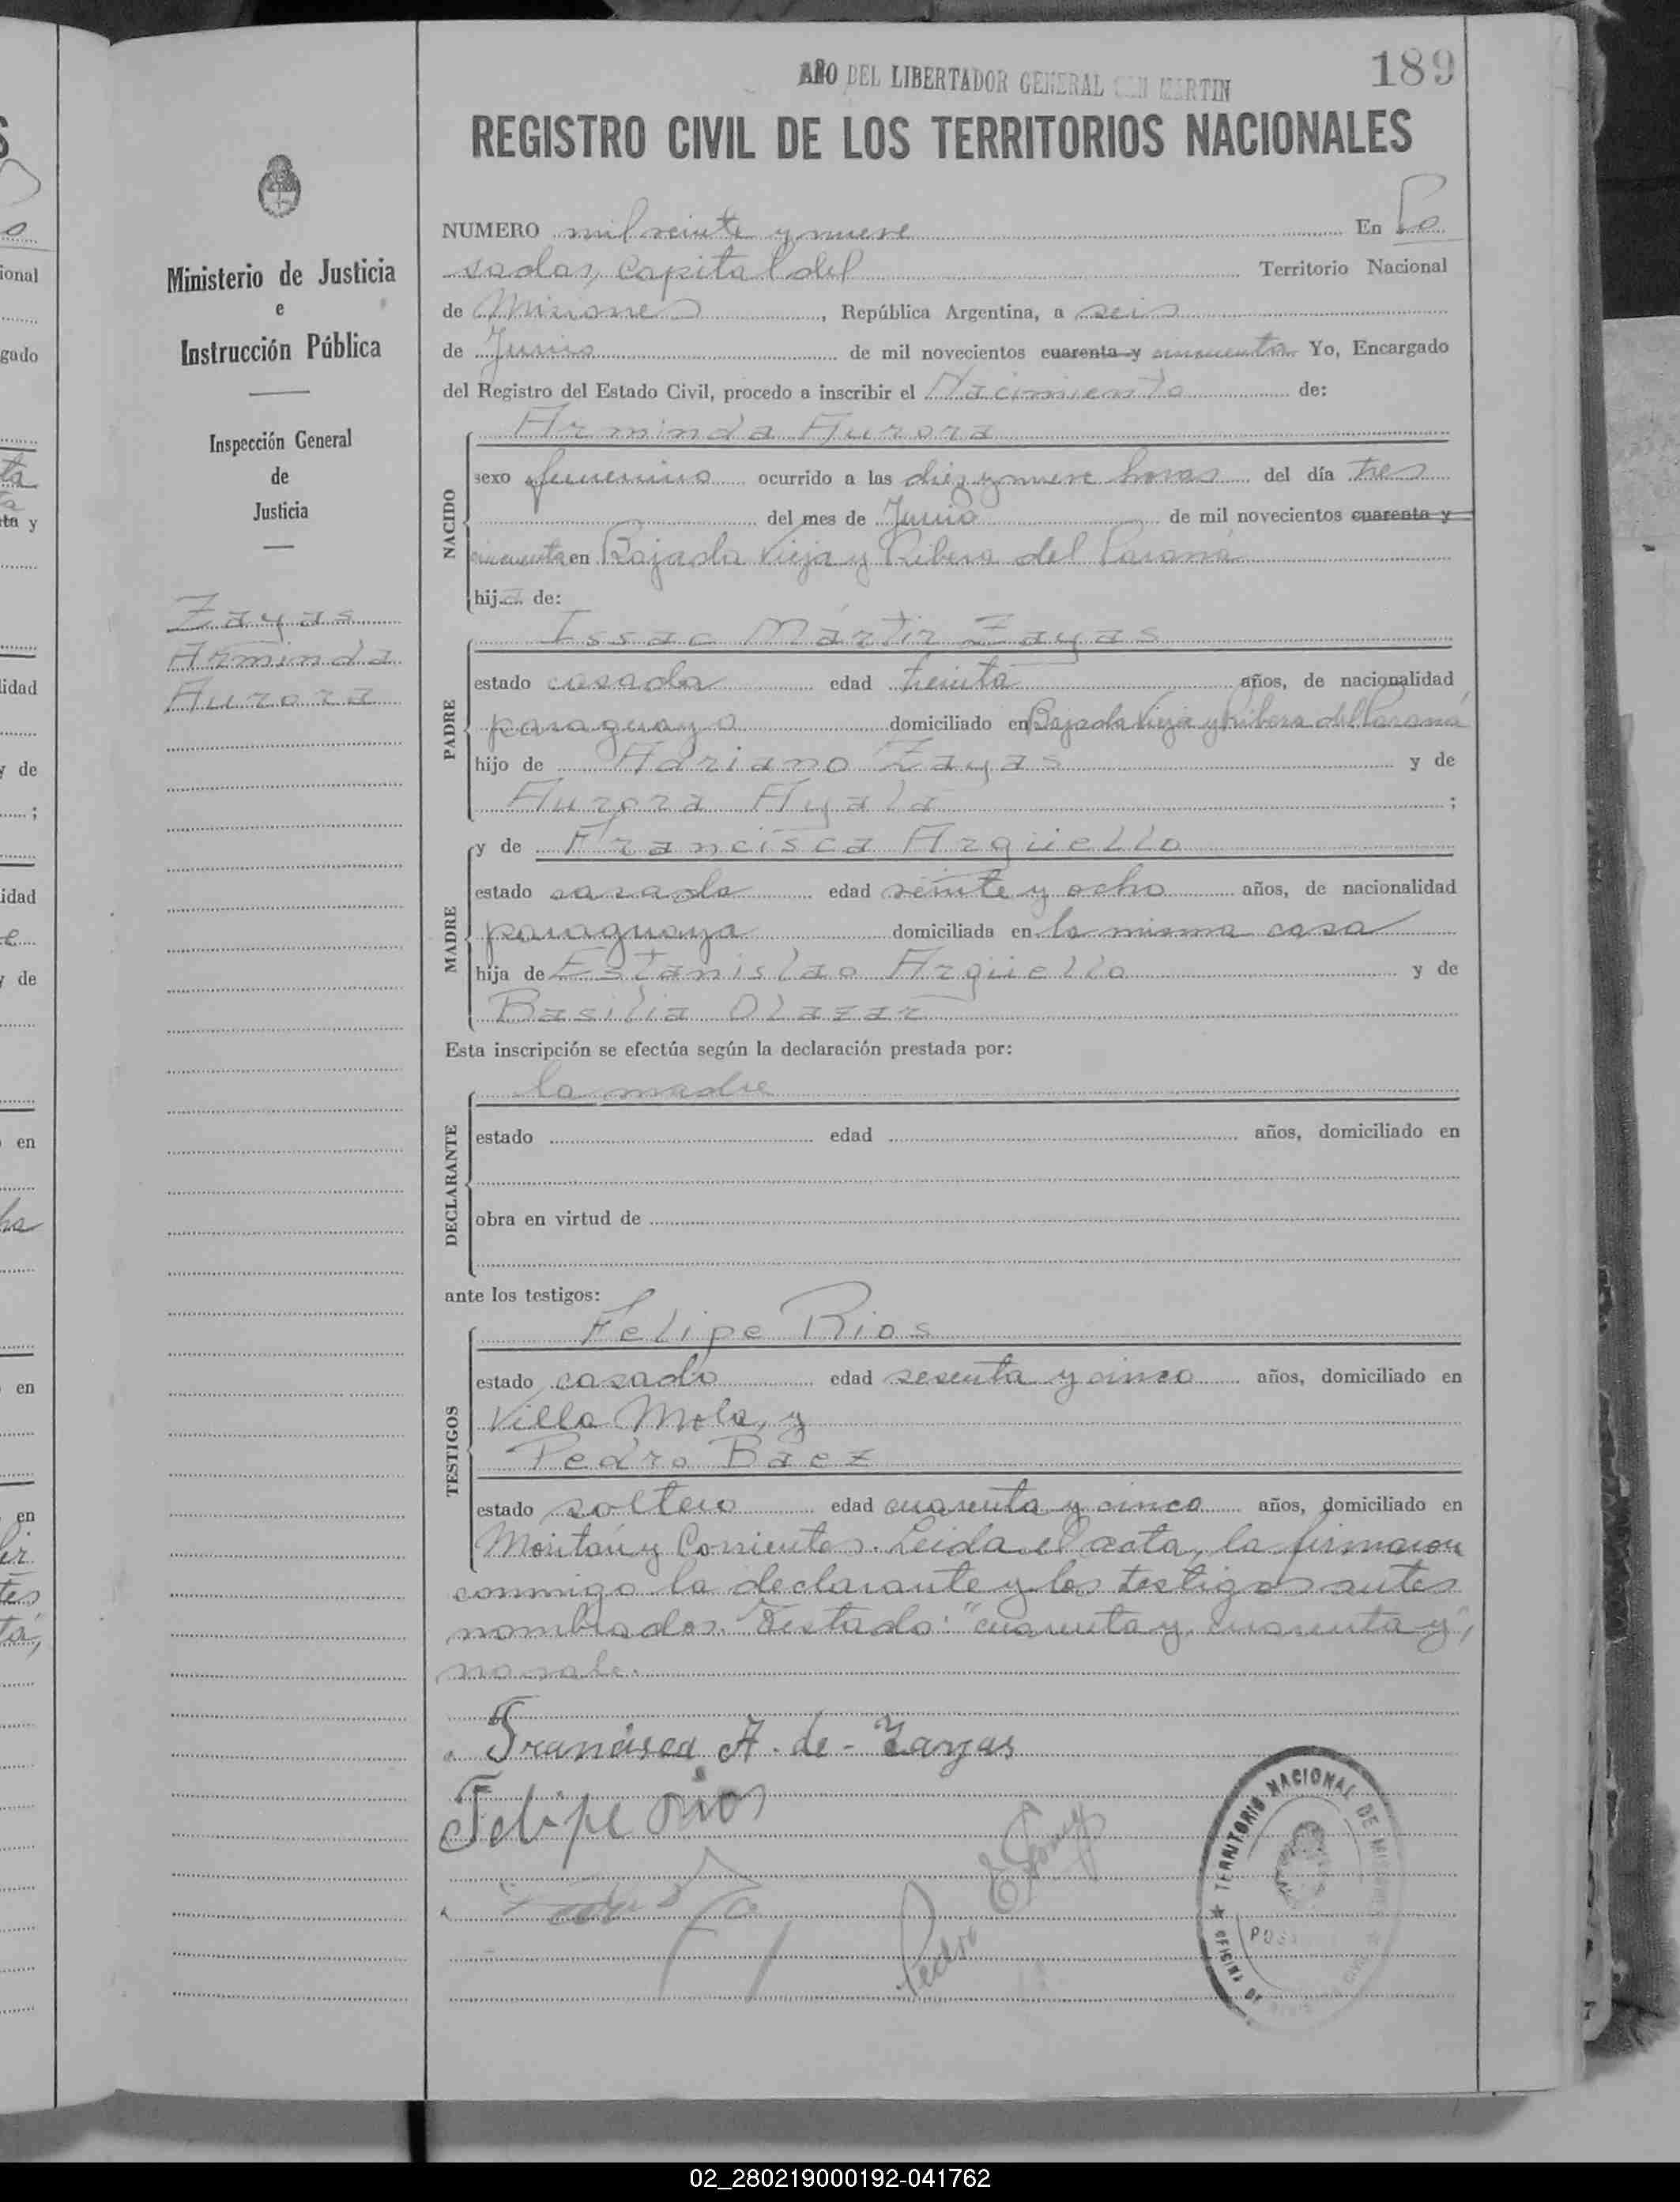 189
AÑO DEL LIBERTADOR GENERAL SAN MARTIN
REGISTRO CIVIL DE LOS TERRITORIOS NACIONALES
Ministerio de Justicia
e
Instrucción Pública
Inspección General
de
Justicia
Zayas
Arminda
Aurora
NUMERO mil veinte y nueve En Po
sadas, Capital del Territorio Nacional
de Misiones, República Argentina, a seis
de Junio de mil novecientos cuarenta y cincuenta Yo, Encargado
del Registro del Estado Civil, procedo a inscribir el Nacimiento de:
NACIDO
Arminda Aurora
sexo femenino ocurrido a las diez y nueve horas del día tres
del mes de Junio de mil novecientos cuarenta y
cincuenta en Bajada Vieja y Ribera del Paraná
hija de:
PADRE
Issac Mártir Zayas
estado casado edad treinta años, de nacionalidad
paraguayo domiciliado en Bajada Vieja y Ribera del Paraná
hijo de Adriano Zayas y de
Aurora Ayala ;
MADRE
y de Francisca Argüello
estado casada edad veinte y ocho años, de nacionalidad
paraguaya domiciliada en la misma casa
hija de Estanislao Argüello y de
Basilia Olazar
Esta inscripción se efectúa según la declaración prestada por:
DECLARANTE
la madre
estado edad años, domiciliado en
obra en virtud de
ante los testigos:
TESTIGOS
Felipe Rios
estado casado edad sesenta y cinco años, domiciliado en
Villa Mola, y
Pedro Baez
estado soltero edad cuarenta y cinco años, domiciliado en
y Corrientes. Leida el acta, la firmaron
conmigo la declarante y los testigos antes
nombrados. Testado: "cuarenta y, cuarenta y",
no vale.
Francisca A. de - Zayas
Felipe rios
Pedro
TERRITORIO NACIONAL DE MIS
OFICINA
POS
02_280219000192-041762